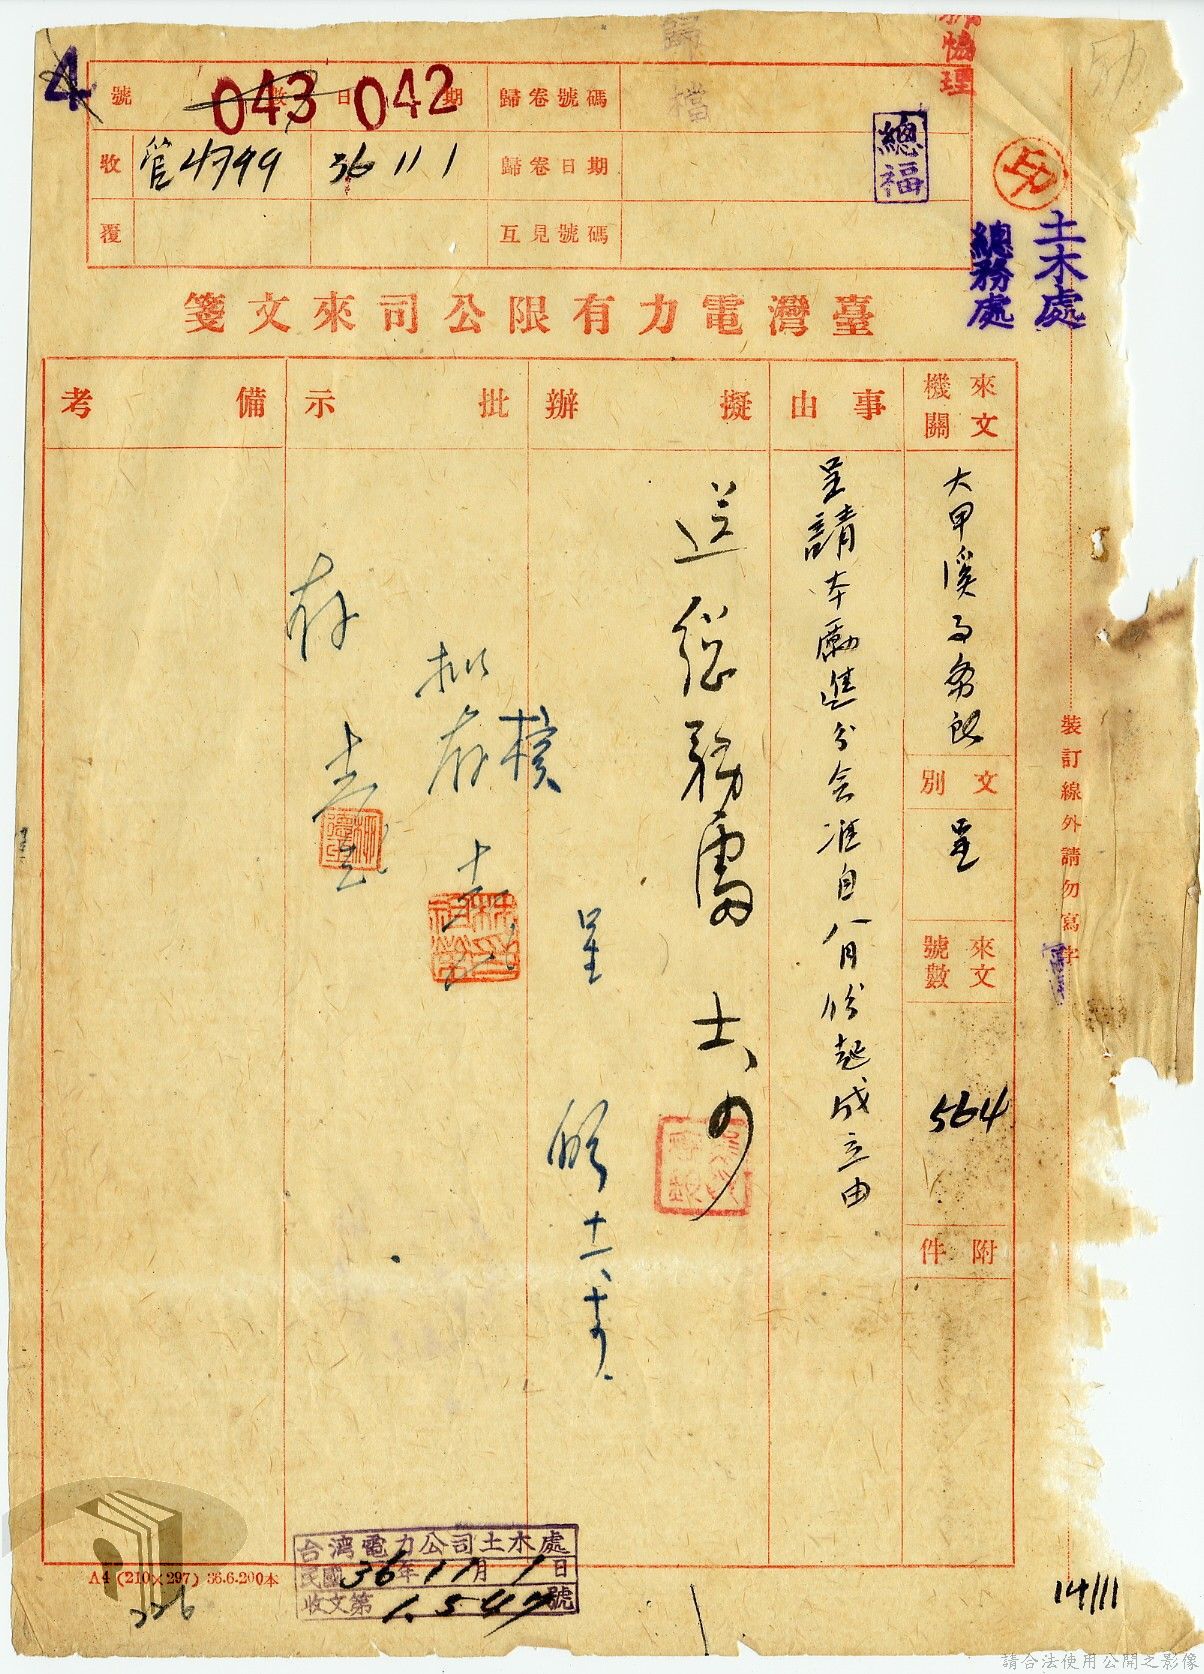 4
協理
歸檔
號 數 日 期 歸卷號碼
043 042
收 管4799 36 11 1 歸卷日期
覆 互見號碼
總福
土木處
總務處
臺灣電力有限公司來文箋
來文機關
大甲溪
文別
呈
來文號數
564
附件
事由
呈請本勵進分會准自八月份起成立由
擬辦
送總務處
呈
批示
存
備考
裝訂線外請勿寫字
台湾電力公司土木處
民國36年11月1日
收文第1,547號
A4 (210×297) 36.6.200本
226
14/11
請合法使用公開之影像